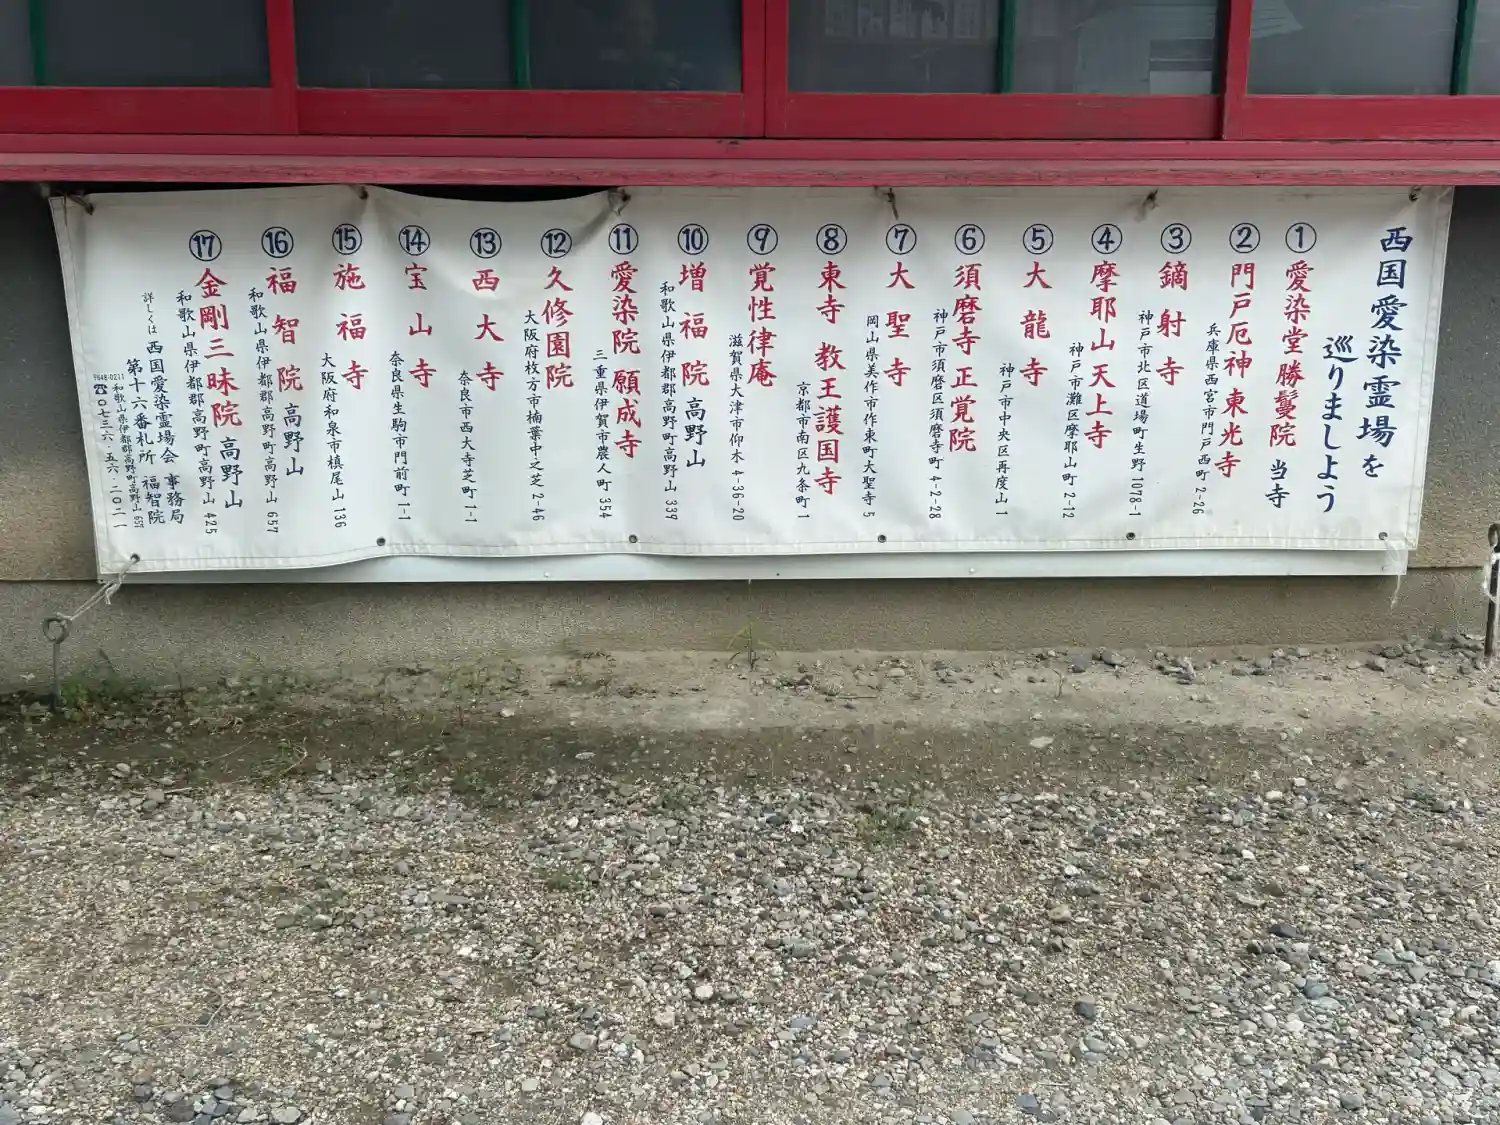 西国愛染霊場を
巡りましよう
①
愛染堂 勝鬘院 当寺
②
門戸厄神 東光寺
兵庫県西宮市門戸西町 2-26
③
鏑射寺
神戸市北区道場町生野 1078-1
④
摩耶山天上寺
神戸市灘区摩耶山町 2-12
⑤
大龍寺
神戸市中央区再度山 1
⑥
須磨寺 正覚院
神戸市須磨区須磨寺町 4-2-28
⑦
大聖寺
岡山県美作市作東町大聖寺 5
⑧
東寺 教王護国寺
京都市南区九条町 1
⑨
覚性律庵
滋賀県大津市仰木 4-36-20
⑩
増福院 高野山
和歌山県伊都郡高野町高野山 339
⑪
愛染院 願成寺
三重県伊賀市農人町 354
⑫
久修園院
大阪府枚方市楠葉中之芝 2-46
⑬
西大寺
奈良市西大寺芝町 1-1
⑭
宝山寺
奈良県生駒市門前町 1-1
⑮
施福寺
大阪府和泉市槙尾山 136
⑯
福智院 高野山
和歌山県伊都郡高野町高野山 657
⑰
金剛三昧院 高野山
和歌山県伊都郡高野町高野山 425
詳しくは 西国愛染霊場会 事務局
第十六番札所 福智院
〒648-0211 和歌山県伊都郡高野町高野山 657
☎〇七三六・五六・二〇二一